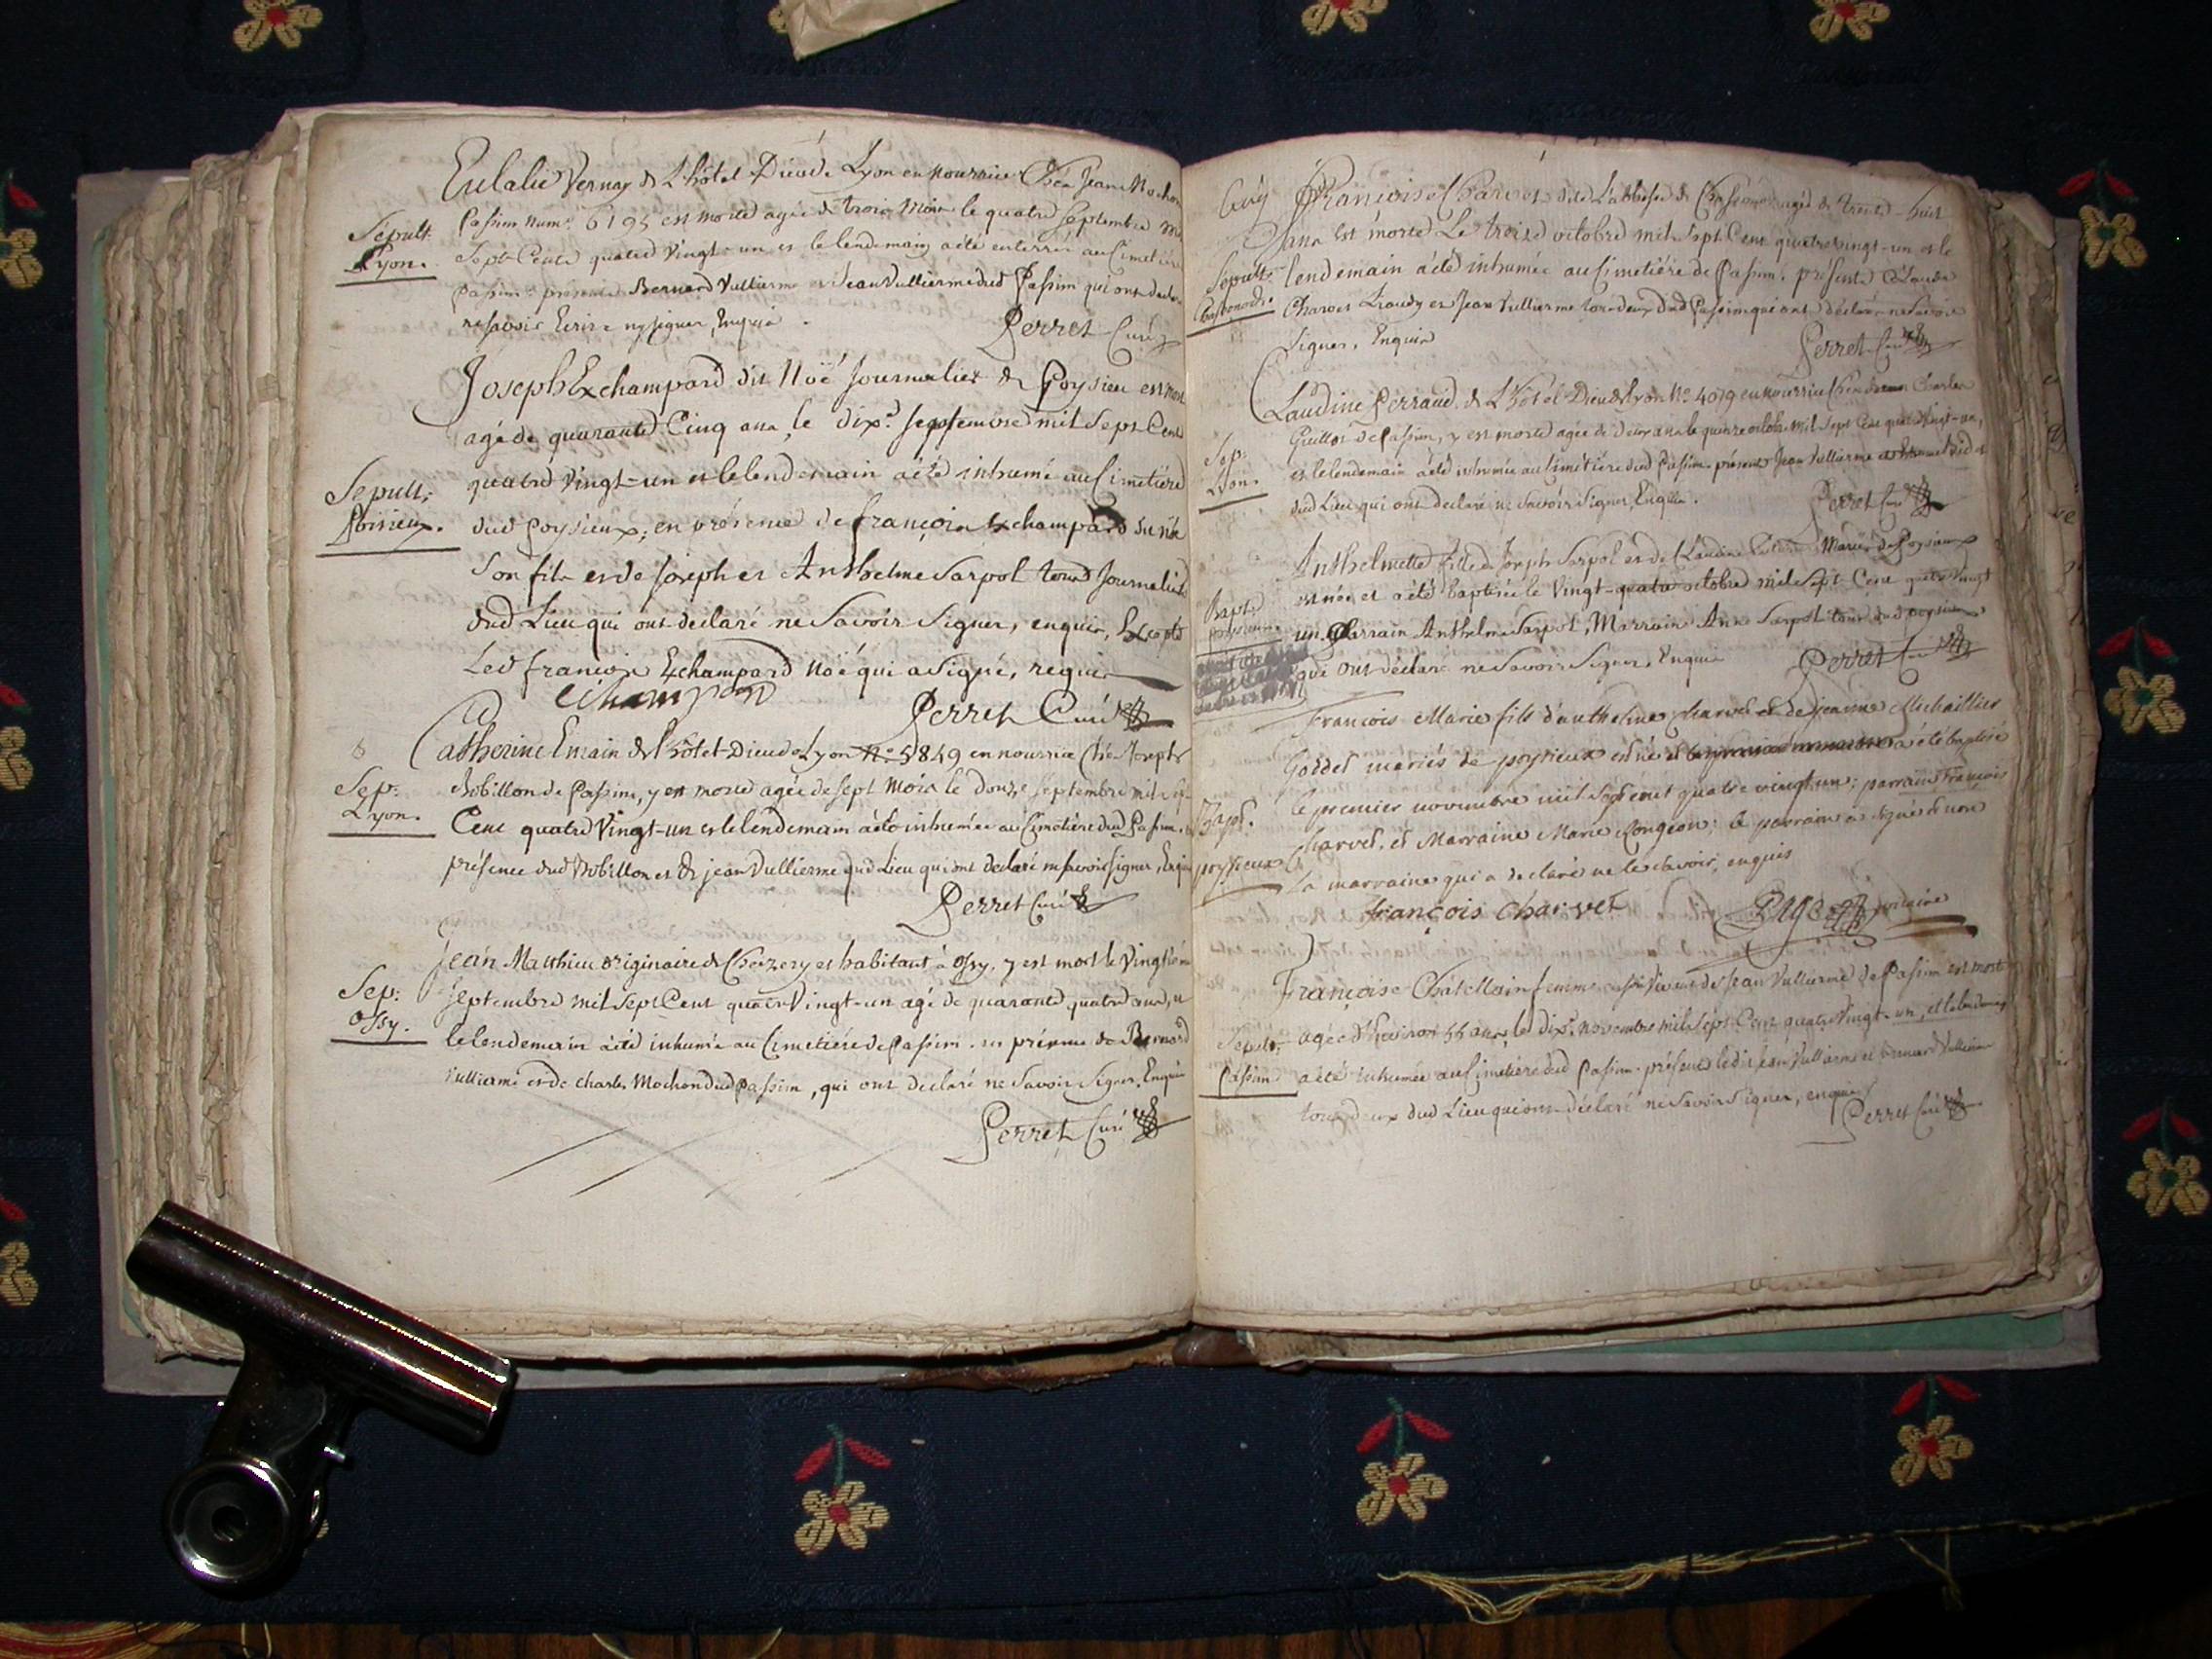 Eulalie Vernay de L'hôtel Dieu de Lyon en nourrice Chéz Jean Mochon
Sepult:
Lyon.
Passim num.° 6195 est morte agée de trois Mois le quatre septembre mil
sept Cents quatre Vingt-un et le lendemain a été enterrée au Cimetière
Passim: présents Bernard Vullierme et Jean Vullierme dud Passim qui ont declaré
ne savoir Ecrire ny signer, Enquis.
Perret Curé
Joseph Exchampard dit Noë Journalier de Poysieu est mort
agé de quarante Cinq ans, le dix.e septembre mil Sept Cent
Sepult:
Poisieux.
quatre Vingt-un et le lendemain a été inhumé au Cimetière
dud Poysieux; en présence de françois Exchampard
Son fils et de Joseph et Anthelme Sarpol tous Journaliers
dud Lieu qui ont declaré ne Savoir Signer, enquis, Excepté
Led françois Exchampard Noë qui a Signé, requis
Perret Curé
Catherine Emain de l'hôtel-Dieu de Lyon N.° 5849 en nourrice Chéz Joseph
Sep:
Lyon.
Robillon de Passim, y est morte agée de sept Mois le Douze septembre mil sept
Cent quatre Vingt-un et le lendemain a été inhumée au Cimetière dud Passim.
présence dud Robillon et de jean Vullierme dud Lieu qui ont declaré ne savoir signer, Enquis
Perret Curé
Jean Matthieu originaire de Chézery et habitant à Ossy, y est mort le Vingtième
Sep:
Ossy.
septembre mil Sept Cent quatre Vingt-un agé de quarante quatre ans, et
le lendemain a été inhumé au Cimetière de Passim. en présence de Bernard
Vullierme et de Charles Mochon dud Passim, qui ont declaré ne Savoir Signer, Enquis
Perret Curé
Françoise Charvet dite L'abbesse de agée de trente-huit
ans est morte Le trois octobre mil sept Cent quatre vingt-un et le
Sepult:
lendemain a été inhumée au Cimetière de Passim. présents Claude
Charvet et Jean Vullierme tous deux dud Passim qui ont déclaré ne Savoir
Signer, Enquis
Perret Curé
Claudine Perraud de L'hôtel-Dieu de Lyon N.° 4079 en nourrice Chéz Charles
Sep:
Lyon.
Guillot de Passim, y est morte agée de deux ans le quinze octobre mil Sept Cent quatre Vingt-un,
et le lendemain a été inhumée au Cimetière dud Passim. présents Jean Vullierme
dud Lieu qui ont declaré ne Savoir Signer, Enquis.
Perret Curé
Anthelmette fille de Joseph Sarpol et de Claudine Mariés de Poysieux
Bapt.
est née et a été baptisée le Vingt-quatre octobre mil Sept Cent quatre Vingt
un, Parrain Anthelme Sarpol, Marraine Anne Sarpol tous dud poysieux
qui ont déclaré ne Savoir Signer, Enquis
Perret Curé
François Marie fils d'anthelme charvet et de jeanne Michaillier
Goddet mariés de poysieux est né et a été baptisé
Bapt.
poysieux
le premier novembre mil Sept cent quatre vingt un; parrain François
charvet, et Marraine Marie Rongeon; le parrain a signé et non
la marraine qui a declaré ne le sçavoir, enquis
françois charvet
Françoise Châtellain femme de Jean Vullierme de Passim est morte
Sepult:
Passim
agée d'Environ 55 ans, le dix.e novembre mil sept Cent quatre Vingt-un, et le lendemain
a été inhumée au Cimetière dud Passim. présents ledit jean Vullierme et bernard Vullierme
tous deux dud Lieu qui ont déclaré ne Savoir Signer, enquis
Perret Curé